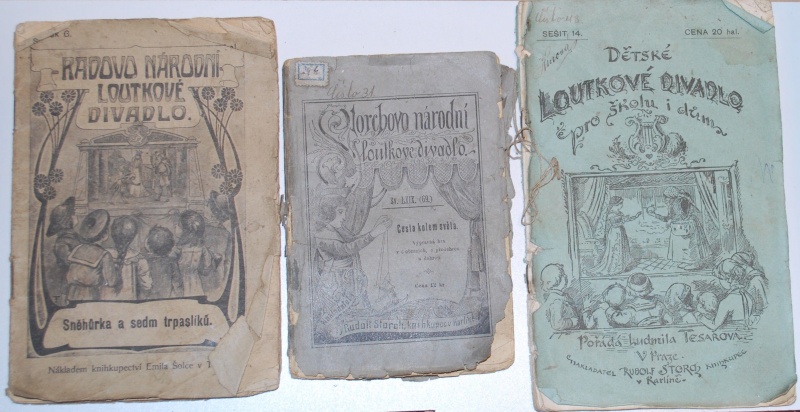 6.
RADOVO NÁRODNÍ
LOUTKOVÉ
DIVADLO.
Sněhůrka a sedm trpaslíků.
Nákladem knihkupectví Emila Šolce v T
číslo 31
Storchovo národní
loutkové divadlo.
Cesta kolem světa.
Výpravná hra
Cena 12 kr.
Rudolf Storch, knihkupec
SEŠIT 14.
CENA 20 hal.
DĚTSKÉ
LOUTKOVÉ DIVADLO
pro školu i dům
Pořádá Ludmila TESAŘOVA.
V Praze.
NAKLADATEL RUDOLF STORCH KNIHKUPEC
v Karlíně.